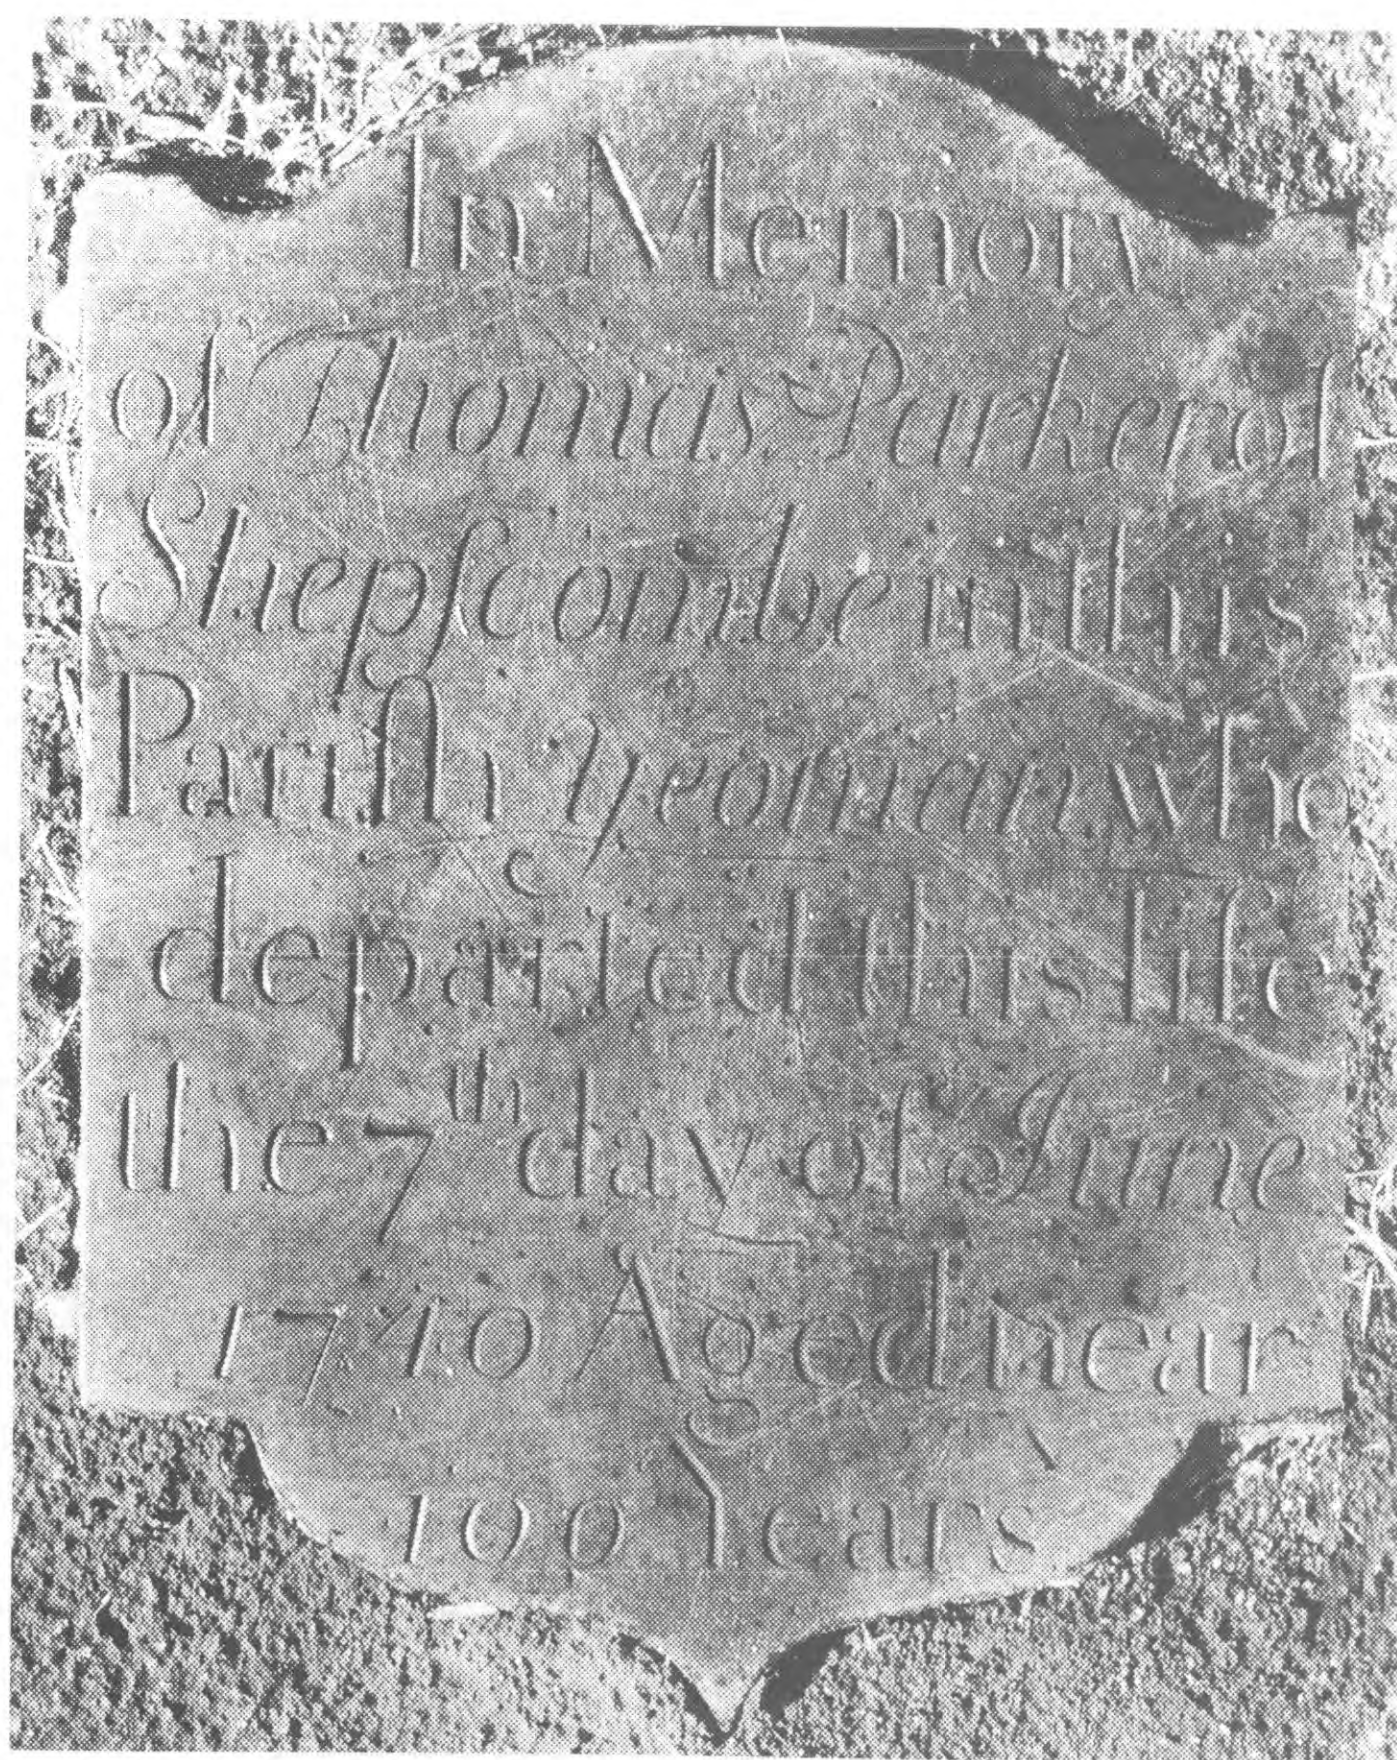 In Memory
of Thomas Parker of
Shepſcombe in this
Pariſh yeoman who
departed this life
the 7th day of June
1740 Aged near
100 Years